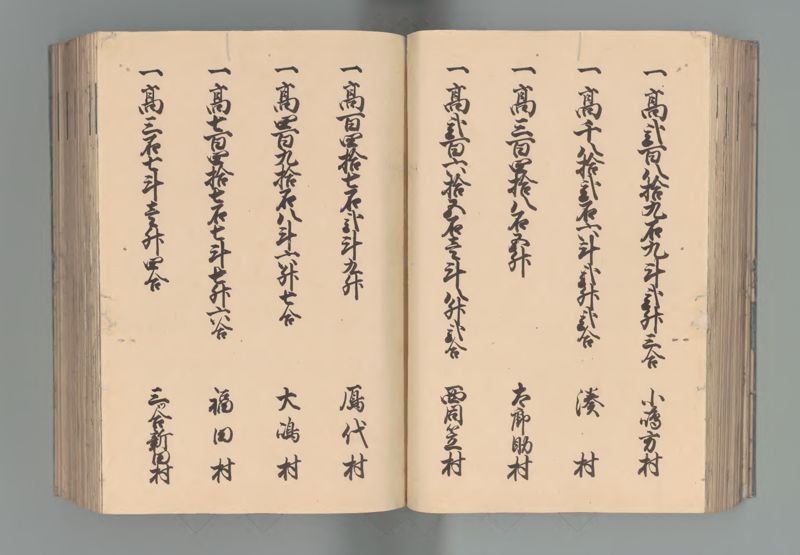 一高弐百八拾九石九斗弐升三合 小嶋方村
一高千八拾弐石六斗弐升弐合 湊村
一高三百四拾八石五升 太郎助村
一高弐百六拾五石壱斗八升弐合 西同笠村
一高百四拾七石弐斗九升 雁代村
一高四百九拾石八斗六升七合 大嶋村
一高七百四拾七石七斗七升六合 福田村
一高三石七斗壱升四合 三ツ合新田村